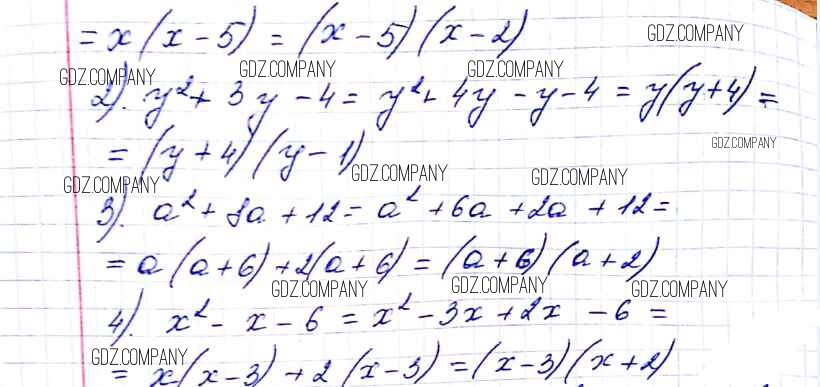 = x(x-5) = (x-5)(x-2)
GDZ.COMPANY
GDZ.COMPANY GDZ.COMPANY GDZ.COMPANY
2). y²+ 3y -4 = y²+ 4y - y - 4 = y(y+4) =
GDZ.COMPANY
= (y+4)(y-1)
GDZ.COMPANY GDZ.COMPANY GDZ.COMPANY
3). a² + 8a + 12 = a² + 6a + 2a + 12 =
= a(a+6) + 2(a+6) = (a+6)(a+2)
GDZ.COMPANY GDZ.COMPANY GDZ.COMPANY
4). x² - x - 6 = x² - 3x + 2x - 6 =
GDZ.COMPANY
= x(x-3) + 2(x-3) = (x-3)(x+2)